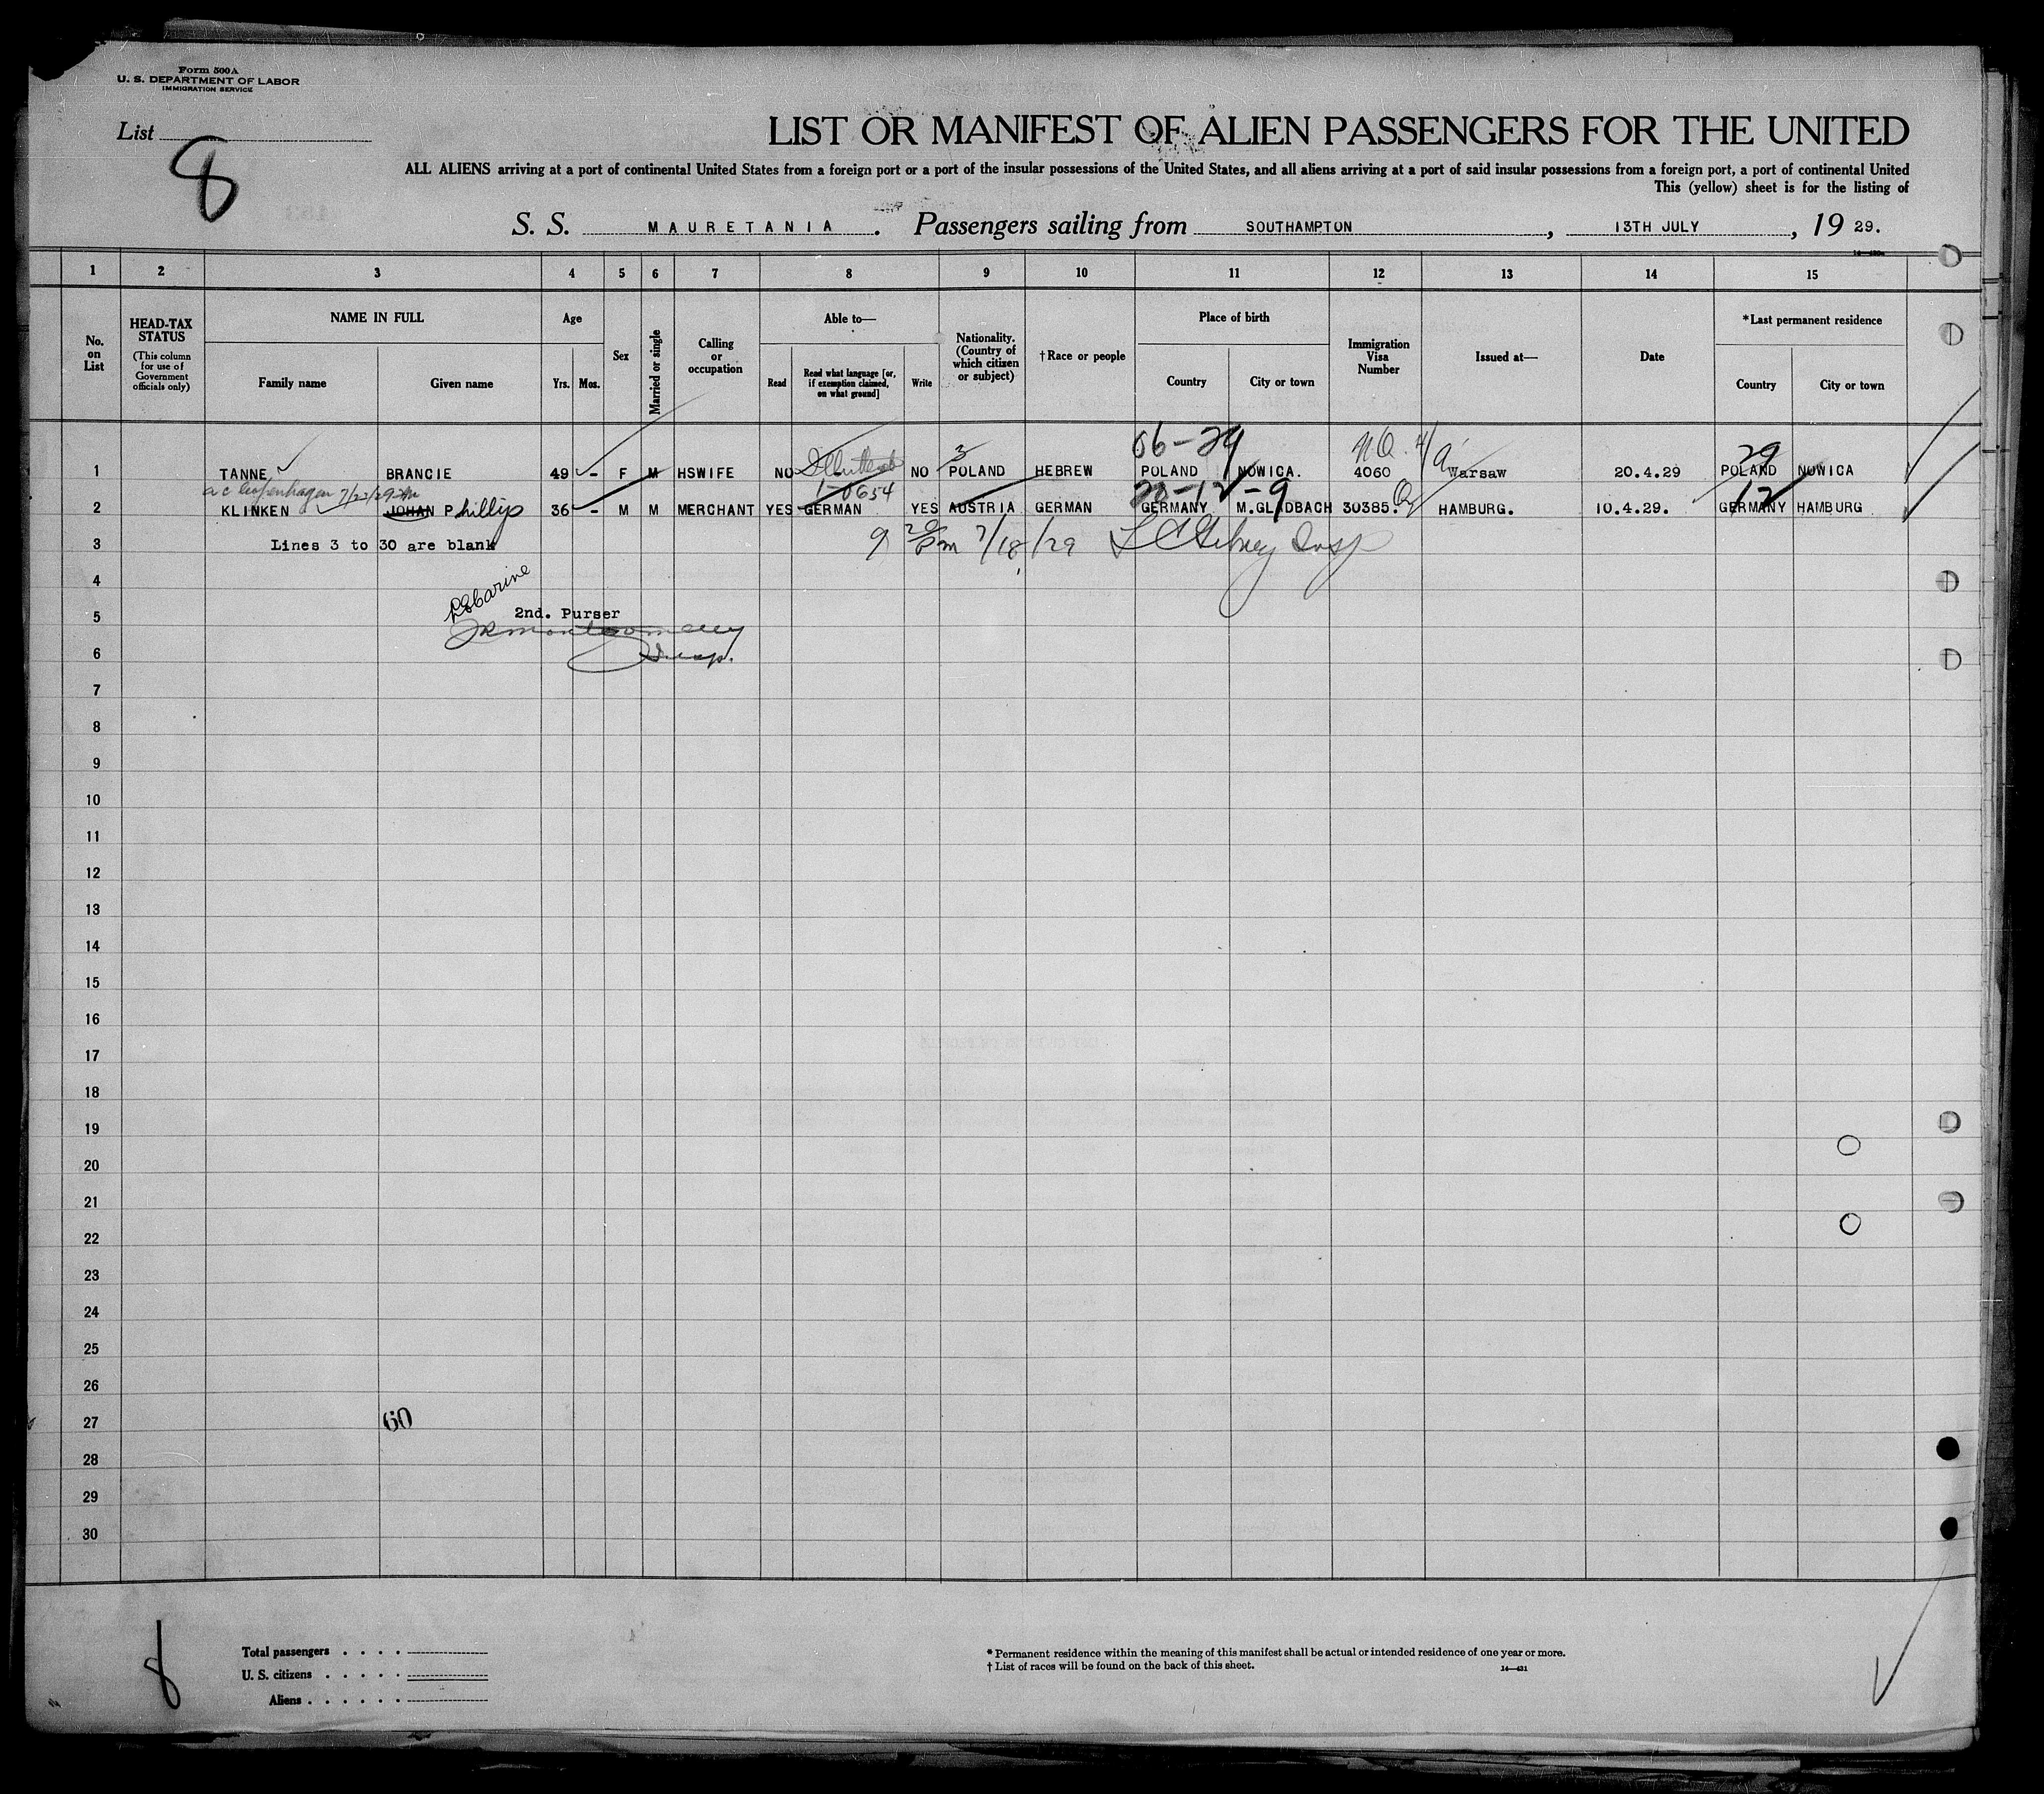 Form 500A
U. S. DEPARTMENT OF LABOR
IMMIGRATION SERVICE
List
8
LIST OR MANIFEST OF ALIEN PASSENGERS FOR THE UNITED
ALL ALIENS arriving at a port of continental United States from a foreign port or a port of the insular possessions of the United States, and all aliens arriving at a port of said insular possessions from a foreign port, a port of continental United
This (yellow) sheet is for the listing of
S. S. MAURETANIA. Passengers sailing from SOUTHAMPTON, 13TH JULY, 19 29.
1 2 3 4 5 6 7 8 9 10 11 12 13 14 15
No. on List
HEAD-TAX STATUS
(This column for use of Government officials only)
NAME IN FULL
Family name
Given name
Age
Yrs.
Mos.
Sex
Married or single
Calling or occupation
Able to—
Read
Read what language [or, if exemption claimed, on what ground]
Write
Nationality. (Country of which citizen or subject)
† Race or people
Place of birth
Country
City or town
Immigration Visa Number
Issued at—
Date
*Last permanent residence
Country
City or town
3 66-24 N.Q. 4/9 29
1 TANNE BRANCIE 49 - F M HSWIFE NO NO POLAND HEBREW POLAND NOWICA. 4060 Warsaw 20.4.29 POLAND NOWICA
a c Copenhagen 7/22/29 1-0654 20-12-9 12
2 KLINKEN JOHAN Phillip 36 - M M MERCHANT YES GERMAN YES AUSTRIA GERMAN GERMANY M.GLADBACH 30385. HAMBURG. 10.4.29. GERMANY HAMBURG
3 Lines 3 to 30 are blank 9 20 Pm 7/18/29 Insp
4
5 2nd. Purser
JRMontgomery
6 Insp.
7
8
9
10
11
12
13
14
15
16
17
18
19
20
21
22
23
24
25
26
27 60
28
29
30
8
Total passengers . . . .
U. S. citizens . . . . .
Aliens . . . . . .
* Permanent residence within the meaning of this manifest shall be actual or intended residence of one year or more.
† List of races will be found on the back of this sheet. 14—431